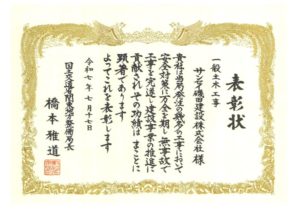 表彰状
一般土木工事
サンセイ磯田建設株式会社 様
貴社は当局発注の機多の工事において
安全対策に万全を期し無事故で
工事を完遂し建設事業の推進に
貢献されその功績はまことに
顕著であります
よってこれを表彰します
令和七年七月十七日
国土交通省関東地方整備局長
橋本雅道